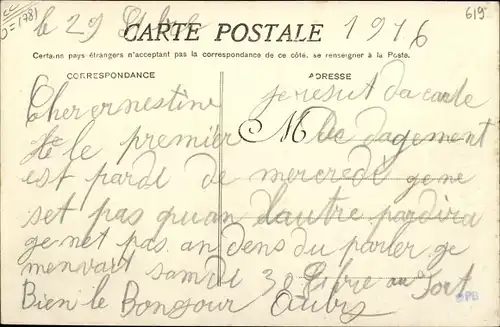 le 29 1916
619
CARTE POSTALE
Certains pays étrangers n'acceptent pas la correspondance de ce côté, se renseigner à la Poste.
CORRESPONDANCE
ADRESSE
Cher ernestine je resut da carte
le premier M de dagement
est pardi de mercredi gene
set pas quan lautre pardira
ge net pas an dens du parler ge
men vart samdi 30 au fort
Bien le Bonjour